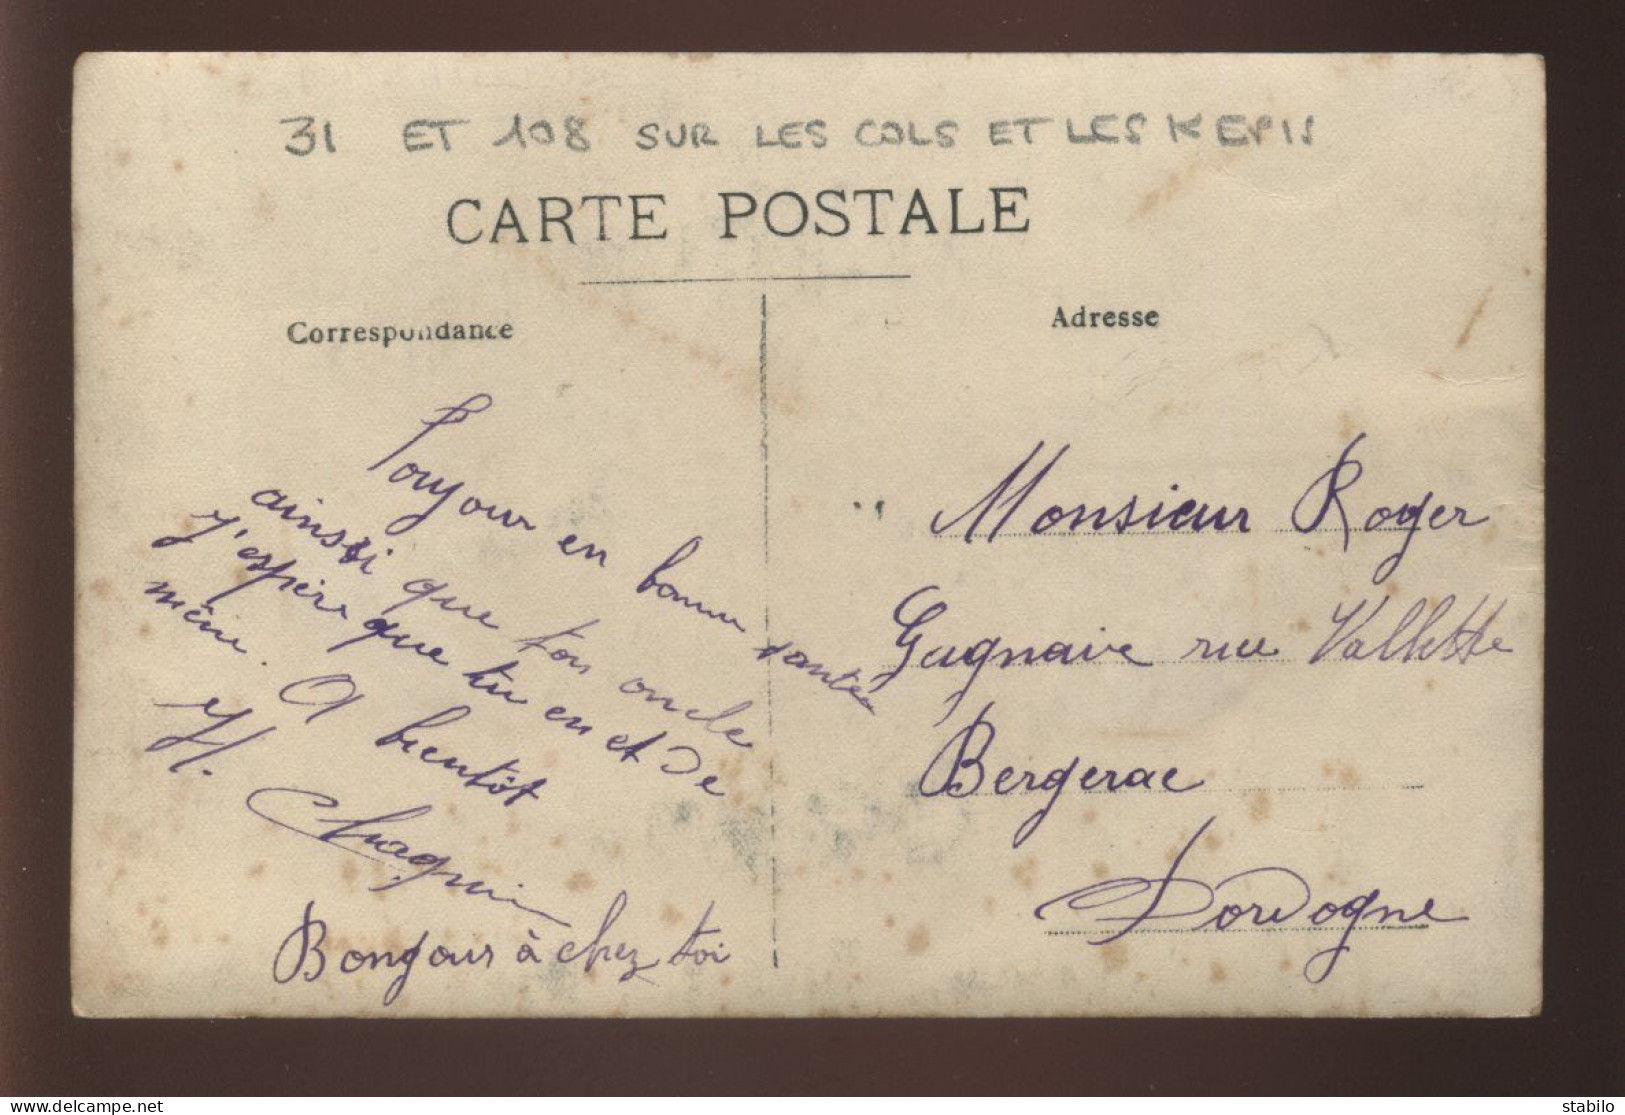 31 ET 108 SUR LES COLS ET LES KEPIS
CARTE POSTALE
Correspondance
Toujour en bonne santée
ainsi que ton oncle
J'espère que tu en et de
même. A bientôt
H. Chaqnin
Bonjour à chez toi
Adresse
Monsieur Roger
Gagnaire rue Vallette
Bergerac
Dordogne
delcampe.net
stabilo